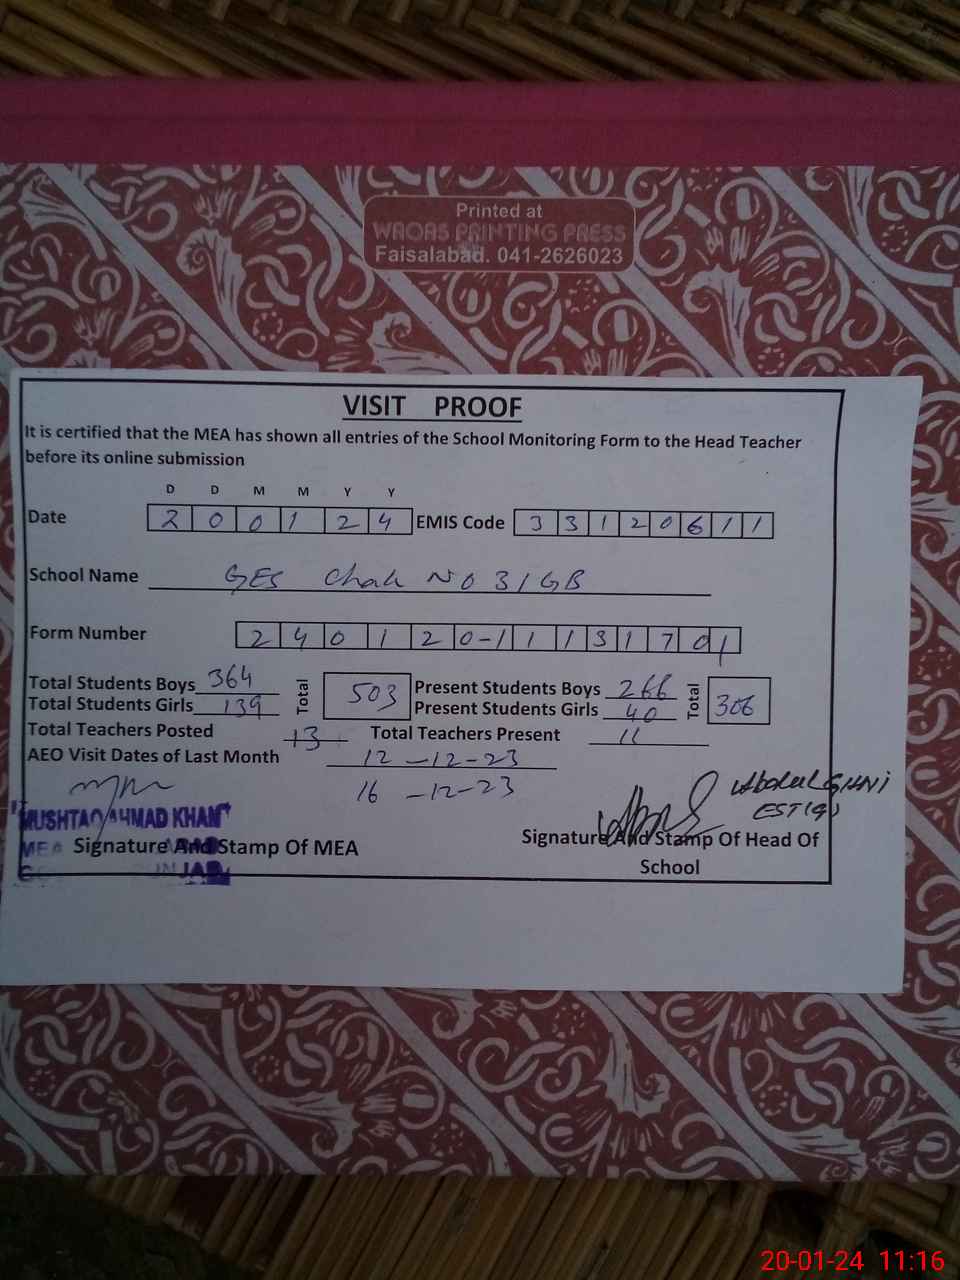 Printed at
WAQAS PRINTING PRESS
Faisalabad. 041-2626023
VISIT PROOF
It is certified that the MEA has shown all entries of the School Monitoring Form to the Head Teacher
before its online submission
D D M M Y Y
Date 2 0 0 1 2 4 EMIS Code 3 3 1 2 0 6 1 1
School Name GES Chak No 31GB
Form Number 2 4 0 1 2 0-1 1 1 3 1 7 0 1
Total Students Boys 364 Total 503 Present Students Boys 266 Total 306
Total Students Girls 139 Present Students Girls 40
Total Teachers Posted 13 Total Teachers Present 11
AEO Visit Dates of Last Month 12-12-23
16-12-23
Abdul GHNI
EST(G)
MUSHTAQ AHMAD KHAN
MEA
Signature And Stamp Of MEA
Signature And Stamp Of Head Of
School
20-01-24 11:16